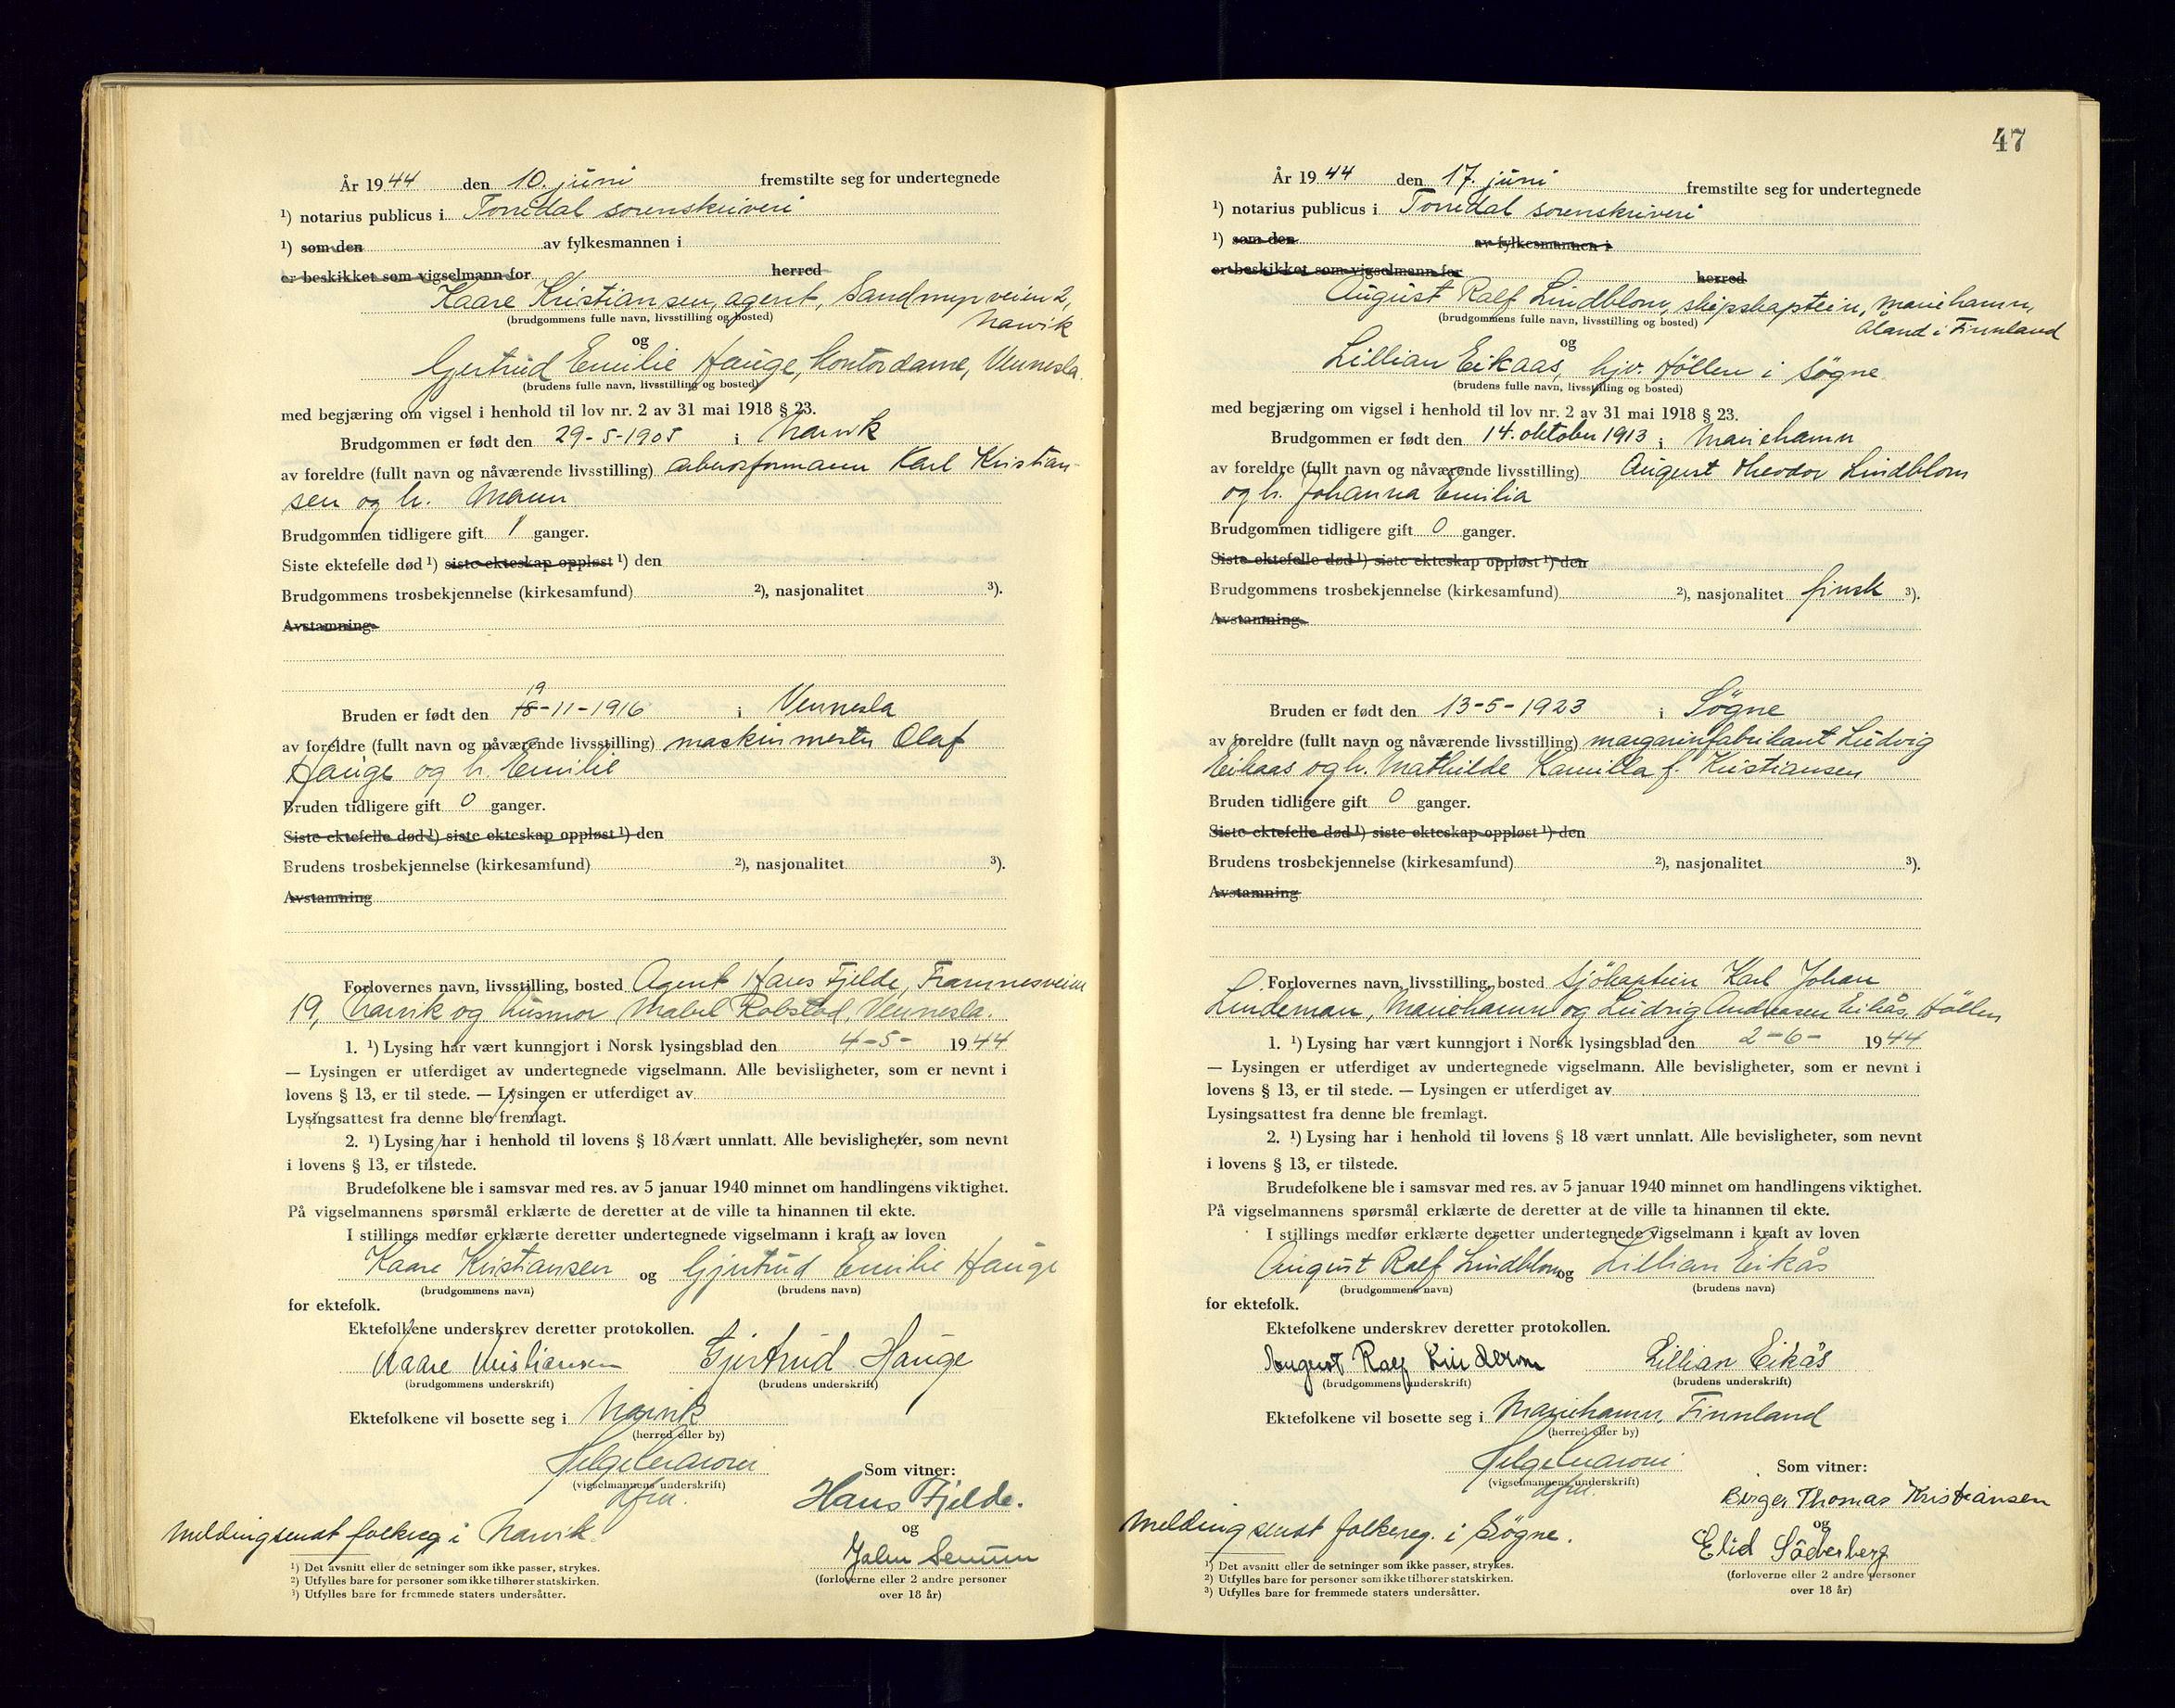 År 1944 den 10. juni fremstilte seg for undertegnede
¹) notarius publicus i Torridal sorenskriveri
¹) som den av fylkesmannen i
er beskikket som vigselmann for herred
Kaare Kristiansen, agent, Sandmyrveien 2,
(brudgommens fulle navn, livsstilling og bosted) Narvik
og
Gjertrud Emilie Hauge, kontordame, Vennesla.
(brudens fulle navn, livsstilling og bosted)
med begjæring om vigsel i henhold til lov nr. 2 av 31 mai 1918 § 23.
Brudgommen er født den 29-5-1905 i Narvik
av foreldre (fullt navn og nåværende livsstilling) arbeidsformann Karl Kristian-
sen og h.
Brudgommen tidligere gift 1 ganger.
Siste ektefelle død ¹) siste ekteskap oppløst ¹) den
Brudgommens trosbekjennelse (kirkesamfund) ²), nasjonalitet ³).
Avstamning
19
Bruden er født den 18-11-1916 i Vennesla
av foreldre (fullt navn og nåværende livsstilling) maskinmester Olaf
Hauge og h. Emilie
Bruden tidligere gift 0 ganger.
Siste ektefelle død ¹) siste ekteskap oppløst ¹) den
Brudens trosbekjennelse (kirkesamfund) ²), nasjonalitet ³).
Avstamning
Forlovernes navn, livsstilling, bosted Agent Hans Fjelde, Framnesveien
19, Narvik og husmor Mabel Robstad, Vennesla.
1. ¹) Lysing har vært kunngjort i Norsk lysingsblad den 4-5- 1944
— Lysingen er utferdiget av undertegnede vigselmann. Alle bevisligheter, som er nevnt i
lovens § 13, er til stede. — Lysingen er utferdiget av
Lysingsattest fra denne ble fremlagt.
2. ¹) Lysing har i henhold til lovens § 18 vært unnlatt. Alle bevisligheter, som nevnt
i lovens § 13, er tilstede.
Brudefolkene ble i samsvar med res. av 5 januar 1940 minnet om handlingens viktighet.
På vigselmannens spørsmål erklærte de deretter at de ville ta hinannen til ekte.
I stillings medfør erklærte deretter undertegnede vigselmann i kraft av loven
Kaare Kristiansen og Gjertrud Emilie Hauge
(brudgommens navn) (brudens navn)
for ektefolk.
Ektefolkene underskrev deretter protokollen.
Kaare Kristiansen Gjertrud Hauge
(brudgommens underskrift) (brudens underskrift)
Ektefolkene vil bosette seg i Narvik
(herred eller by)
Som vitner:
(vigselmannens underskrift)
Hans Fjelde.
og
Meldning sendt folkereg i Narvik.
(forloverne eller 2 andre personer
over 18 år)
¹) Det avsnitt eller de setninger som ikke passer, strykes.
²) Utfylles bare for personer som ikke tilhører statskirken.
³) Utfylles bare for fremmede staters undersåtter.
47
År 1944 den 17. juni fremstilte seg for undertegnede
¹) notarius publicus i Torridal sorenskriveri
¹) som den av fylkesmannen i
er beskikket som vigselmann for herred
August Ralf Lindblom, skipskaptein, Mariehamn,
(brudgommens fulle navn, livsstilling og bosted) Åland i Finnland
og
Lillian Eikaas, hjv. Höllen i Søgne
(brudens fulle navn, livsstilling og bosted)
med begjæring om vigsel i henhold til lov nr. 2 av 31 mai 1918 § 23.
Brudgommen er født den 14. oktober 1913 i Mariehamn
av foreldre (fullt navn og nåværende livsstilling) August Theodor Lindblom
og h. Johanna Emilia
Brudgommen tidligere gift 0 ganger.
Siste ektefelle død ¹) siste ekteskap oppløst ¹) den
Brudgommens trosbekjennelse (kirkesamfund) ²), nasjonalitet finsk ³).
Avstamning
Bruden er født den 13-5-1923 i Søgne
av foreldre (fullt navn og nåværende livsstilling) margarinfabrikant Ludvig
Eikaas og h. Mathilde Kamilla f. Kristiansen
Bruden tidligere gift 0 ganger.
Siste ektefelle død ¹) siste ekteskap oppløst ¹) den
Brudens trosbekjennelse (kirkesamfund) ²), nasjonalitet ³).
Avstamning
Forlovernes navn, livsstilling, bosted Sjökaptein Karl Johan
Lindeman, Mariehamn og Ludvig Andreasen Eikås, Höllen
1. ¹) Lysing har vært kunngjort i Norsk lysingsblad den 2-6- 1944
— Lysingen er utferdiget av undertegnede vigselmann. Alle bevisligheter, som er nevnt i
lovens § 13, er til stede. — Lysingen er utferdiget av
Lysingsattest fra denne ble fremlagt.
2. ¹) Lysing har i henhold til lovens § 18 vært unnlatt. Alle bevisligheter, som nevnt
i lovens § 13, er tilstede.
Brudefolkene ble i samsvar med res. av 5 januar 1940 minnet om handlingens viktighet.
På vigselmannens spørsmål erklærte de deretter at de ville ta hinannen til ekte.
I stillings medfør erklærte deretter undertegnede vigselmann i kraft av loven
August Ralf Lindblom og Lillian Eikås
(brudgommens navn) (brudens navn)
for ektefolk.
Ektefolkene underskrev deretter protokollen.
August Ralf Lindblom Lillian Eikås
(brudgommens underskrift) (brudens underskrift)
Ektefolkene vil bosette seg i Mariehamn, Finnland
(herred eller by)
Som vitner:
(vigselmannens underskrift)
Birger Thomas Kristiansen
og
Meldning sendt folkereg. i Søgne.
Elid Söderberg
(forloverne eller 2 andre personer
over 18 år)
¹) Det avsnitt eller de setninger som ikke passer, strykes.
²) Utfylles bare for personer som ikke tilhører statskirken.
³) Utfylles bare for fremmede staters undersåtter.